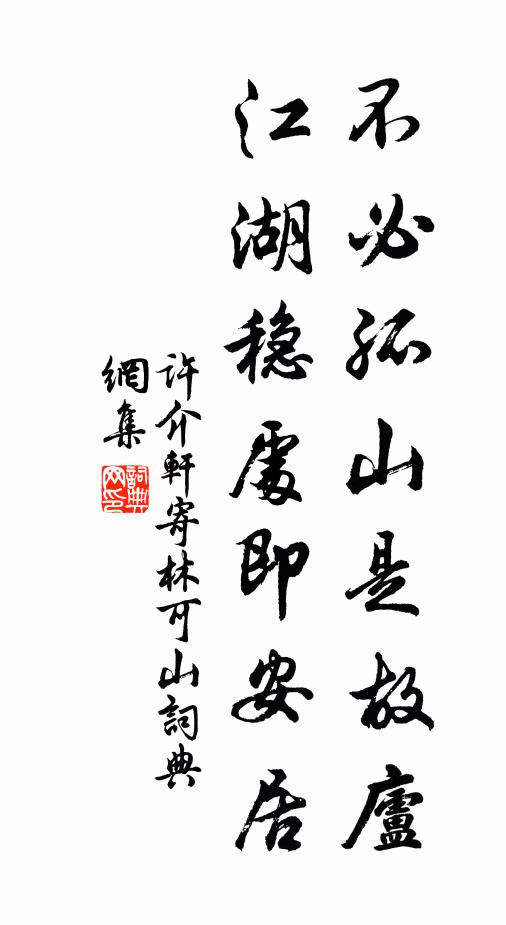 不必孤山是故廬
江湖穩處即安居
許介軒寄林可山詞典
網集
詞典
网印